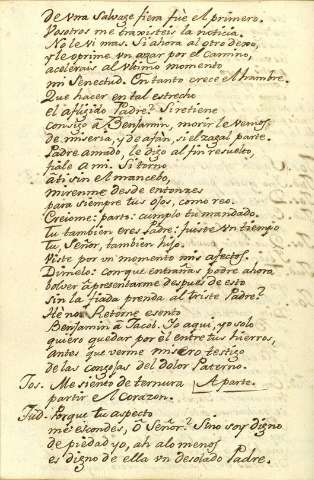 de vna Salvage fiera fùe el primero.
Vosotros me tragisteis la noticia.
No le vi mas. Si ahora al otro dexo,
y le oprime vn azar por el Camino,
acelerais al vltimo momento
mi Senectud. En tanto crece el hambre.
Que hacer en tal estrecho
el afligido Padre? Si retiene
consigo à Benjamin, morir le vemos
de miseria, y de afàn, si el zagal parte.
Padre amado, le digo al fin resuelto
fialo a mi. Si torno
a ti sin el mancebo,
mirenme desde entonzes
para siempre tus ojos, como reo.
Creiome: parto: cumplo tu mandado.
Tu tambièn eres Padre: fuiste vn tiempo
tu, Señor, tambien hijo.
Viste por vn momento mis afectos.
Dimelo: con que entrañas podrè ahora
bolver à presentarme despues de esto
sin la fiada prenda al triste Padre?
He nò! Retorne esento
Benjamin à Jacob. Yo aqui, yo solo
quiero quedar por èl entre tus hierros,
antes que verme misero testigo
de las congojas del dolor Paterno.
Jos. Me siento de ternura Aparte.
partir el Corazon.
Jud. Porque tu aspecto
me escondes, ô Señor? Sino soy digno
de piedad yo, ah alo menos
es digno de ella vn desolado Padre.